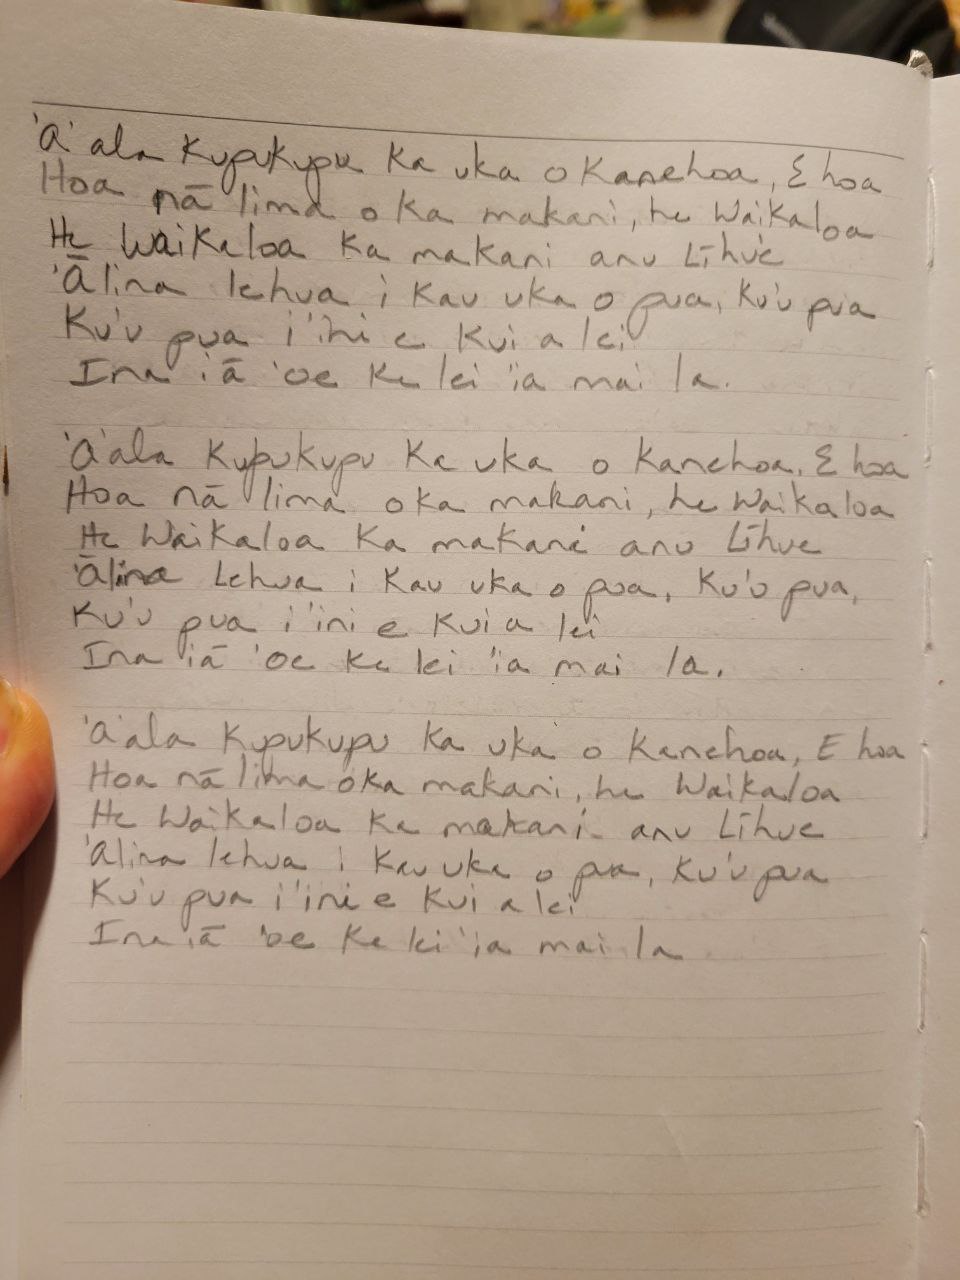 'A'ala Kupukupu Ka uka o Kanehoa, E hoa
Hoa nā lima o Ka makani, he Waikaloa
He Waikaloa Ka makani anu Līhu'e
'Ālina lehua i Kau uka o pua, Ku'u pua
Ku'u pua i 'ini e Kui a lei
Ina iā 'oe Ke lei 'ia mai la.
'A'ala Kupukupu Ka uka o Kanehoa, E hoa
Hoa nā lima o Ka makani, he Waikaloa
He Waikaloa Ka makani anu Līhue
'Ālina Lehua i Kau uka o pua, Ku'u pua,
Ku'u pua i 'ini e Kui a lei
Ina iā 'oe Ke lei 'ia mai la.
'A'ala Kupukupu Ka uka o Kanehoa, E hoa
Hoa nā lima o Ka makani, he Waikaloa
He Waikaloa Ka makani anu Līhue
'Alina lehua i Kau uka o pua, Ku'u pua
Ku'u pua i 'ini e Kui a lei
Ina iā 'oe Ke lei 'ia mai la